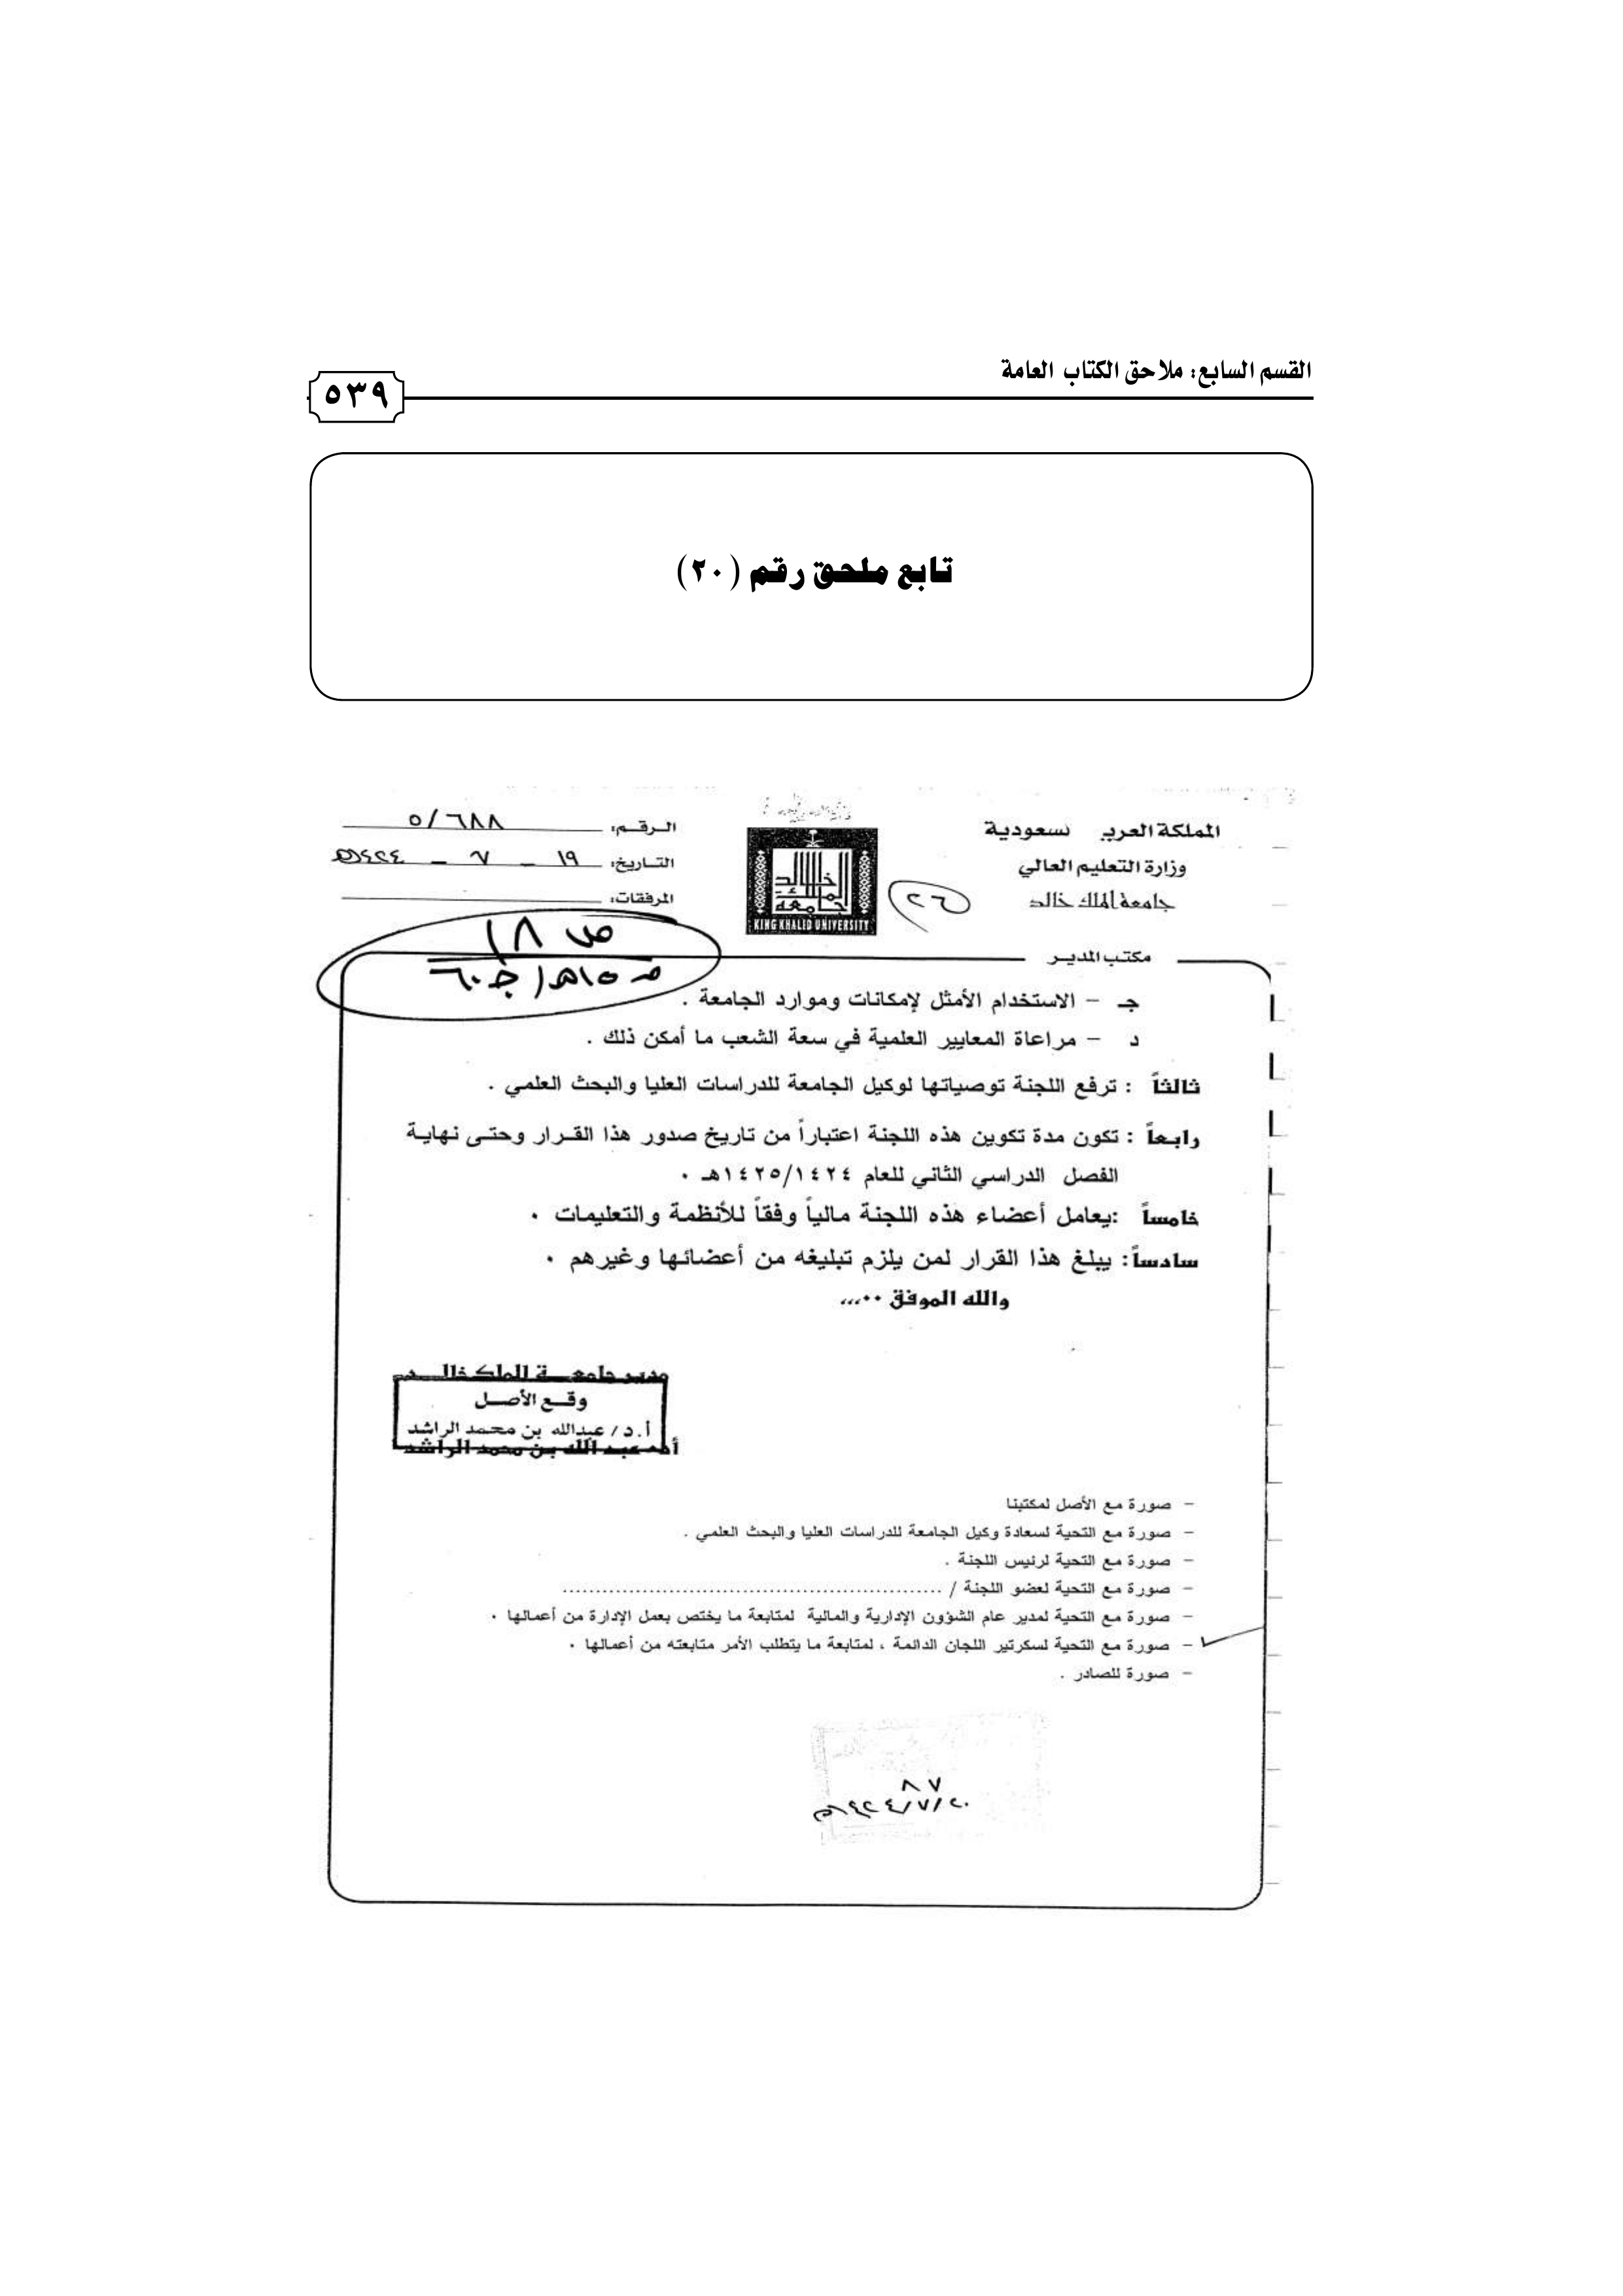 القسم السابع: ملاحق الكتاب العامة
٥٣٩
تابع ملحق رقم (٢٠)
المملكة العربية السعودية
وزارة التعليم العالي
جامعة الملك خالد
KING KHALID UNIVERSITY
٢٦
الرقم: ٥/٦٨٨
التاريخ: ١٩ - ٧ - ١٤٢٤هـ
المرفقات:
ص ١٨
مكتب المدير
جـ - الاستخدام الأمثل لإمكانات وموارد الجامعة .
د - مراعاة المعايير العلمية في سعة الشعب ما أمكن ذلك .
ثالثاً : ترفع اللجنة توصياتها لوكيل الجامعة للدراسات العليا والبحث العلمي .
رابعاً : تكون مدة تكوين هذه اللجنة اعتباراً من تاريخ صدور هذا القرار وحتى نهاية
الفصل الدراسي الثاني للعام ١٤٢٥/١٤٢٤هـ ٠
خامساً :يعامل أعضاء هذه اللجنة مالياً وفقاً للأنظمة والتعليمات ٠
سادساً: يبلغ هذا القرار لمن يلزم تبليغه من أعضائها وغيرهم ٠
والله الموفق ٠٠،،،
مدير جامعة الملك خالد
وقع الأصل
أ.د/ عبدالله بن محمد الراشد
أ.د عبد الله بن محمد الراشد
- صورة مع الأصل لمكتبنا
- صورة مع التحية لسعادة وكيل الجامعة للدراسات العليا والبحث العلمي .
- صورة مع التحية لرئيس اللجنة .
- صورة مع التحية لعضو اللجنة / ........................................................
- صورة مع التحية لمدير عام الشؤون الإدارية والمالية لمتابعة ما يختص بعمل الإدارة من أعمالها ٠
- صورة مع التحية لسكرتير اللجان الدائمة ، لمتابعة ما يتطلب الأمر متابعته من أعمالها ٠
- صورة للصادر .
٨٧
٢٠/٧/١٤٢٤هـ